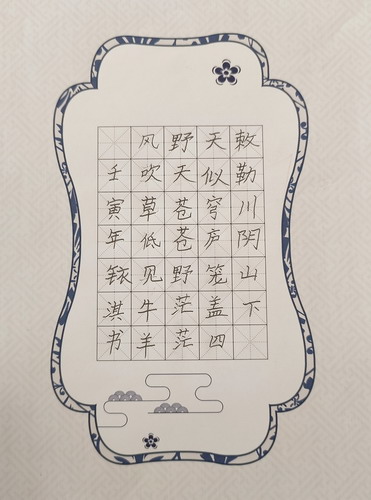 敕勒川阴山下
天似穹庐笼盖四
野天苍苍野茫茫
风吹草低见牛羊
壬寅年铱淇书